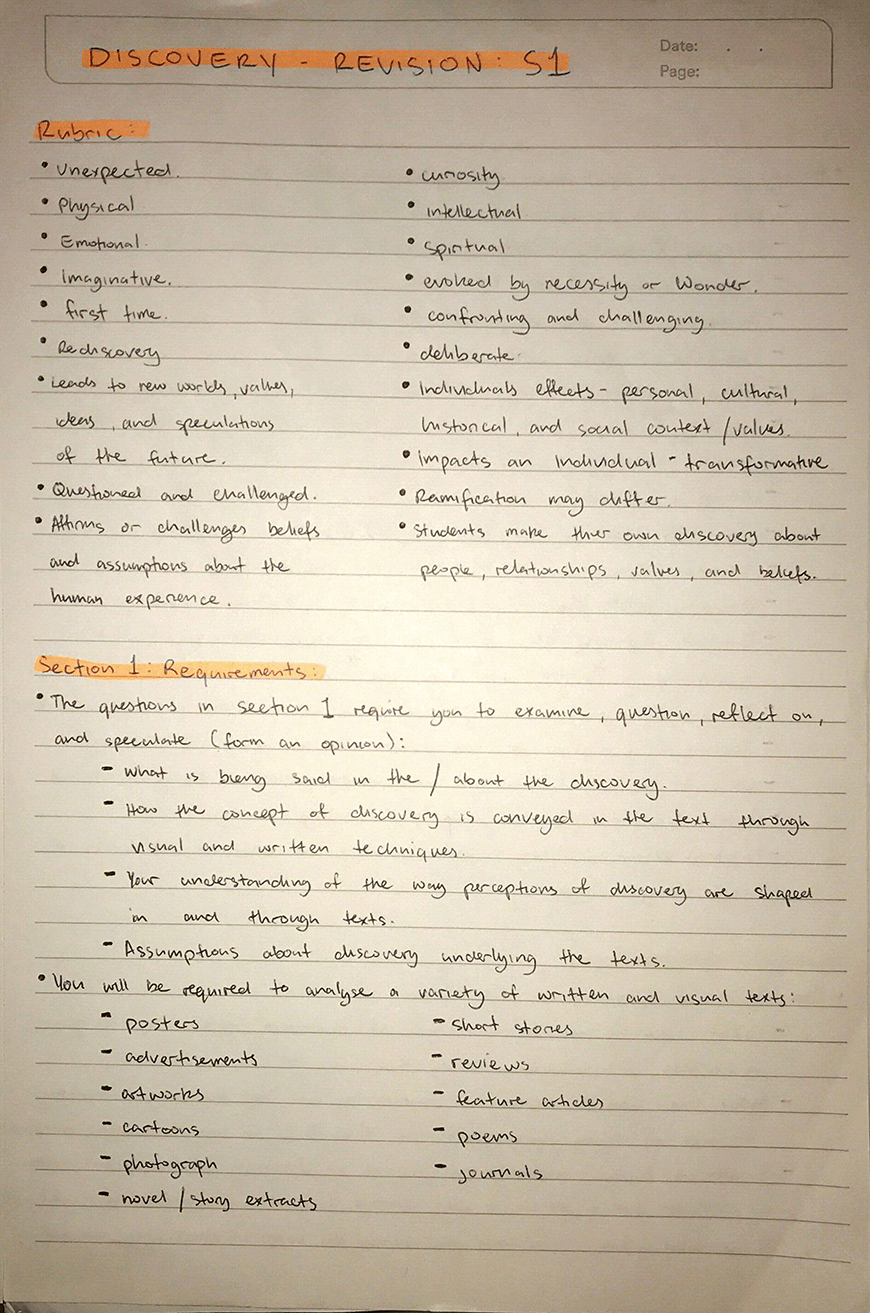 DISCOVERY - REVISION: S1
Date: . .
Page:
Rubric:
• Unexpected.
• Physical
• Emotional.
• Imaginative.
• first time.
• Rediscovery
• Leads to new worlds, values,
ideas, and speculations
of the future.
• Questioned and challenged.
• Affirms or challenges beliefs
and assumptions about the
human experience.
• curiosity
• intellectual
• spiritual
• evoked by necessity or Wonder.
• confronting and challenging.
• deliberate.
• Individuals effects - personal, cultural,
historical, and social context / values.
• Impacts an individual - transformative
• Ramification may differ.
• Students make thier own discovery about
people, relationships, values, and beliefs.
Section 1: Requirements:
• The questions in section 1 require you to examine, question, reflect on,
and speculate (form an opinion):
- What is being said in the / about the discovery.
- How the concept of discovery is conveyed in the text through
visual and written techniques.
- Your understanding of the way perceptions of discovery are shaped
in and through texts.
- Assumptions about discovery underlying the texts.
• You will be required to analyse a variety of written and visual texts:
- posters
- advertisements
- artworks
- cartoons
- photograph
- novel / story extracts
- short stories
- reviews
- feature articles
- poems
- journals